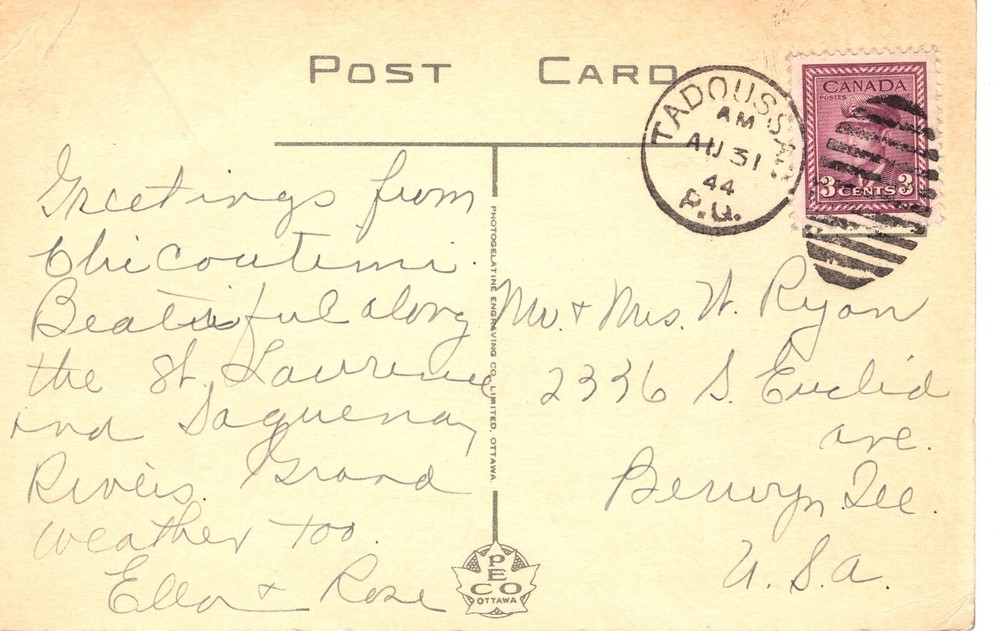 POST CARD
TADOUSSAC
AM
AU 31
44
P.Q.
CANADA
POSTES
3 CENTS 3
Greetings from
Chicoutimi.
Beatiful along
the St. Laurence
and Saguenay
Rivers. Grand
weather too.
Ella + Rose
PHOTOGELATINE ENGRAVING CO. LIMITED, OTTAWA.
PECO
OTTAWA
Mr. + Mrs. W. Ryan
2336 S. Euclid
ave.
Berwyn Ill.
U.S.a.